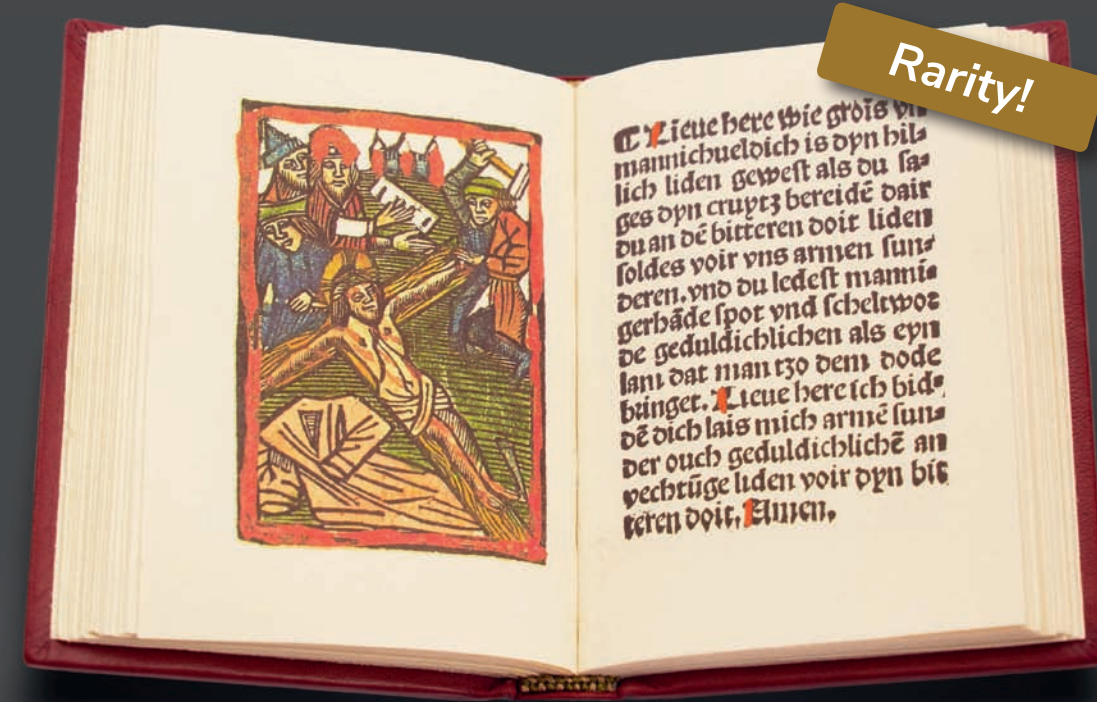 Rarity!
¶ Lieue here wie grois vñ
mannichueldich is dyn hil⸗
lich liden gewest als du sa⸗
ges dyn cruytz bereidē dair
du an dē bitteren doit liden
soldes voir vns armen sun⸗
deren. vnd du ledest manni⸗
gerhāde spot vnd scheltwor
de geduldichlichen als eyn
lam dat man tzo dem dode
bringet. Lieue here ich bid⸗
dē dich lais mich armē sun⸗
der ouch geduldichlichē an
vechtūge liden voir dyn bit
teren doit. Amen.